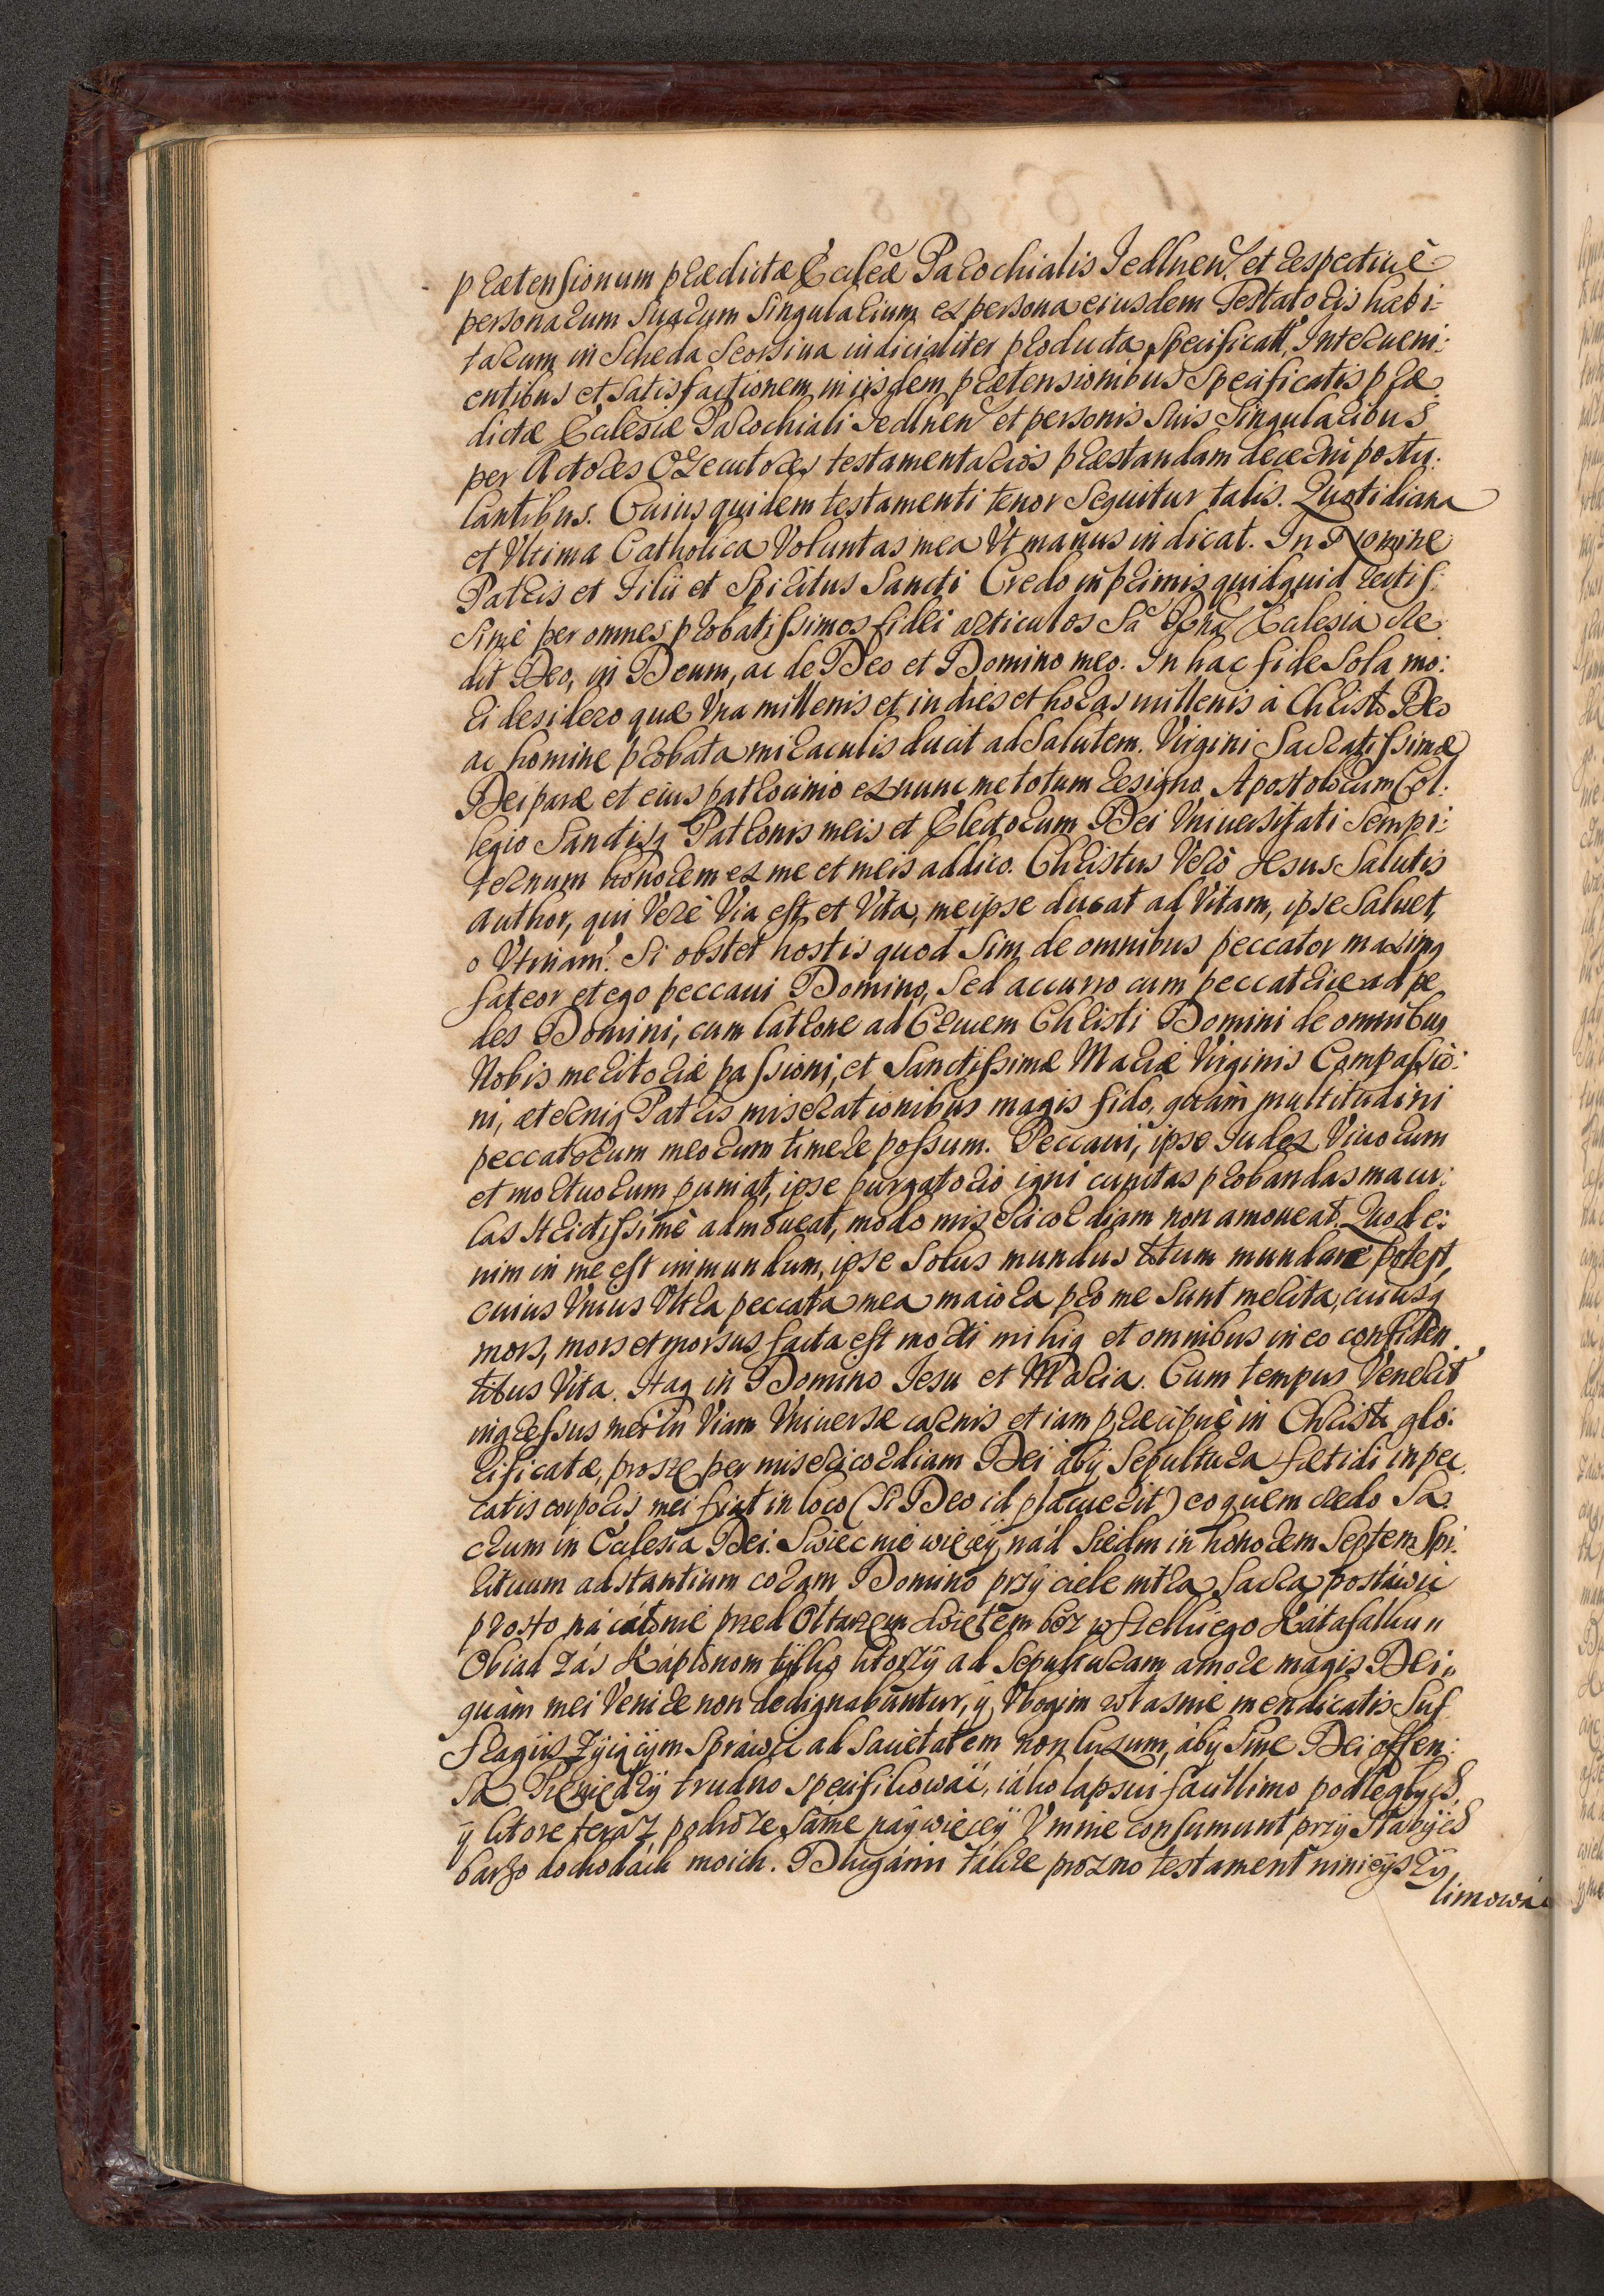 prætensionum prædictæ Eccleæ Parochialis Jedlnen et respectiuè
personarum suarum singularium ex persona eiusdem Testatoris habi:
tarum in Scheda Seorsiua iudicialiter producta, Specificatt, Interueni:
entibus et satisfactionem in iisdem prætensionibus Specificatis præ
dictæ Ecclesiæ Parochiali Jedlnen et personis suis singularibus
per Actores Exekutores testamentarios præstandam decerni postu:
lantibus. Cuius quidem testamenti tenor Sequitur talis. Quotidiana
et Vltima Catholica Voluntas mea Vt manus indicat. In Nomine
Patris et Filii et Spiritus Sancti Credo inprimis quidquid rectis:
simè per omnes probatissimos fidei articulos Sa Ecclesia cre
dit Deo, in Deum, ac de Deo et Domino meo. In hac fide Sola mo:
ri desidero quæ Vna millenis et in dies et horas millenis à Christo Deo
ac homine probata miraculis ducit ad Salutem. Virgini Sacratissimæ
Deiparæ et eius patrocinio ex nunc me totum resigno. Apostolorum Col:
legio Sanctisq Patronis meis et Electorum Dei Vniuersitati Sempi:
ternum honorem ex me et meis addico. Christus Verò Jesus Salutis
author, qui Verè Via est et Vita, me ipse ducat ad Vitam, ipse Saluet,
o Vtinam! Si obstet hostis quod Sim de omnibus peccator maximq
fateor et ego peccaui Domino, Sed accurro cum peccatrice ad pe
des Domini, cum latrone ad Crucem Christi Domini de omnibus
Nobis meritoriæ passioni, et Sanctissimæ Mariæ Virginis Compassio:
ni, æterniq Patris miserationibus magis fido, quàm multitudini
peccatorum meorum timere possum. Peccaui, ipse Judex Viuorum
et mortuorum puniat, ipse purgatorio igni cunctas probandas macu:
las strictissimè admoueat, modo misericordiam non amoueat. Quod e:
nim in me est immundum, ipse Solus mundus totum mundare potest,
cuius Vnius Vltra peccata mea maiora pro me Sunt merita, cuiusq
mors, mors et morsus facta est morti mihiq et omnibus in eo confiden
tibus Vita. Itaq in Domino Jesu et Maria. Cum tempus Venerit
ingressus mei in Viam Vniuersæ carnis etiam præcipuè in Christo glo:
rificatæ, proszę per misericordiam Dei áby Sepultura fœtidi in pec
catis corporis mei fiat in loco (Si Deo id placuerit) eo quem credo Sa
crum in Ecclesia Dei. Swiec nie więcey nád Siedm in honorem Septem Spi
rituum adstantium coram Domino przy ciele intra Sacra postáwic
prosto ná przed Oltarzem swiętem bez wszelkiego Kátafalku
Obiad zás Káplonom tylko ktorzy ad Sepulturam amore magis Dei
quàm mei Venire non dedignabuntur, y Vbogim własnie mendicatis Suf
fragiis zyiącym Spráwic ad Sacietatem non luxum, áby Sine Dei offen:
sa. Pieniędzy trudno specifikowáć, iáko lapsui facillimo podległych,
y ktore teraz podroze Sáme naywięcey Vmnie consumunt przy Słabych
bárzo dochodách moich. Długámi tákze prozno testament ninieyszy
limowá